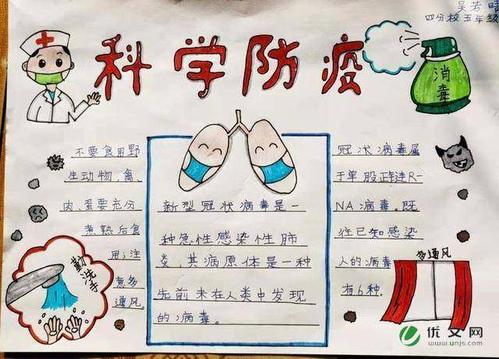 吴芳晴
四分校五年级
科学防疫
消毒
不要食用野
生动物,禽
肉、蛋要充分
煮熟后食
用;注
意多
通风
新型冠状病毒是一
种急性感染性肺
炎,其病原体是一种
先前未在人类中发现
的病毒。
冠状病毒属
于单股正链R-
NA病毒,既
往已知感染
人的病毒
有6种。
勤洗手
多通风
优文网
www.unjs.com